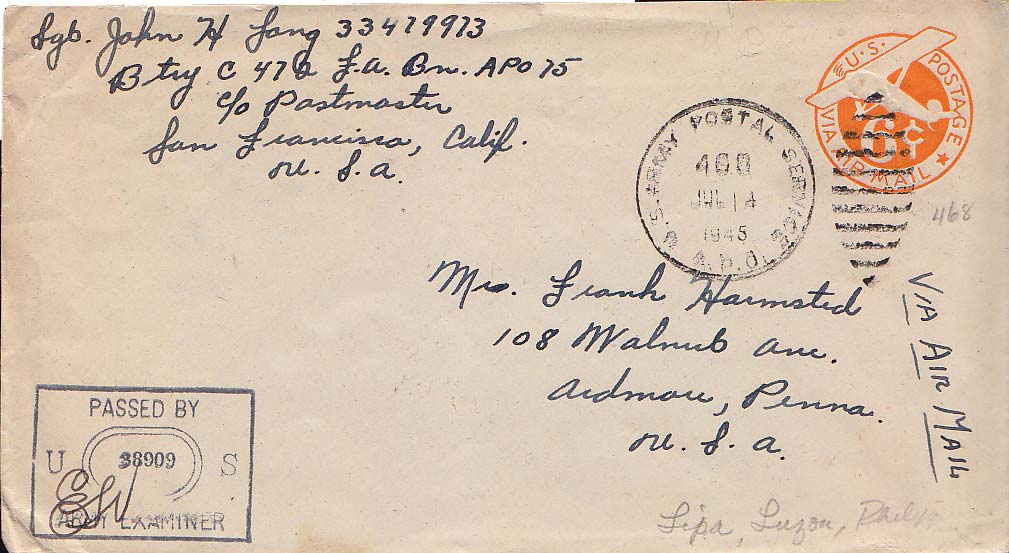 Sgt. John H Long 33479973
Btry C 472 F.A. Bn. APO 75
c/o Postmaster
San Francisco, Calif.
U. S. A.
U.S. POSTAGE
VIA AIR MAIL
6¢
U.S. ARMY POSTAL SERVICE
JUL 14
1945
A.P.O.
468
Mrs. Frank Harmsted
108 Walnut Ave.
Ardmore, Penna.
U. S. A.
VIA AIR MAIL
PASSED BY
U 38909 S
ARMY EXAMINER
Lipa, Luzon,